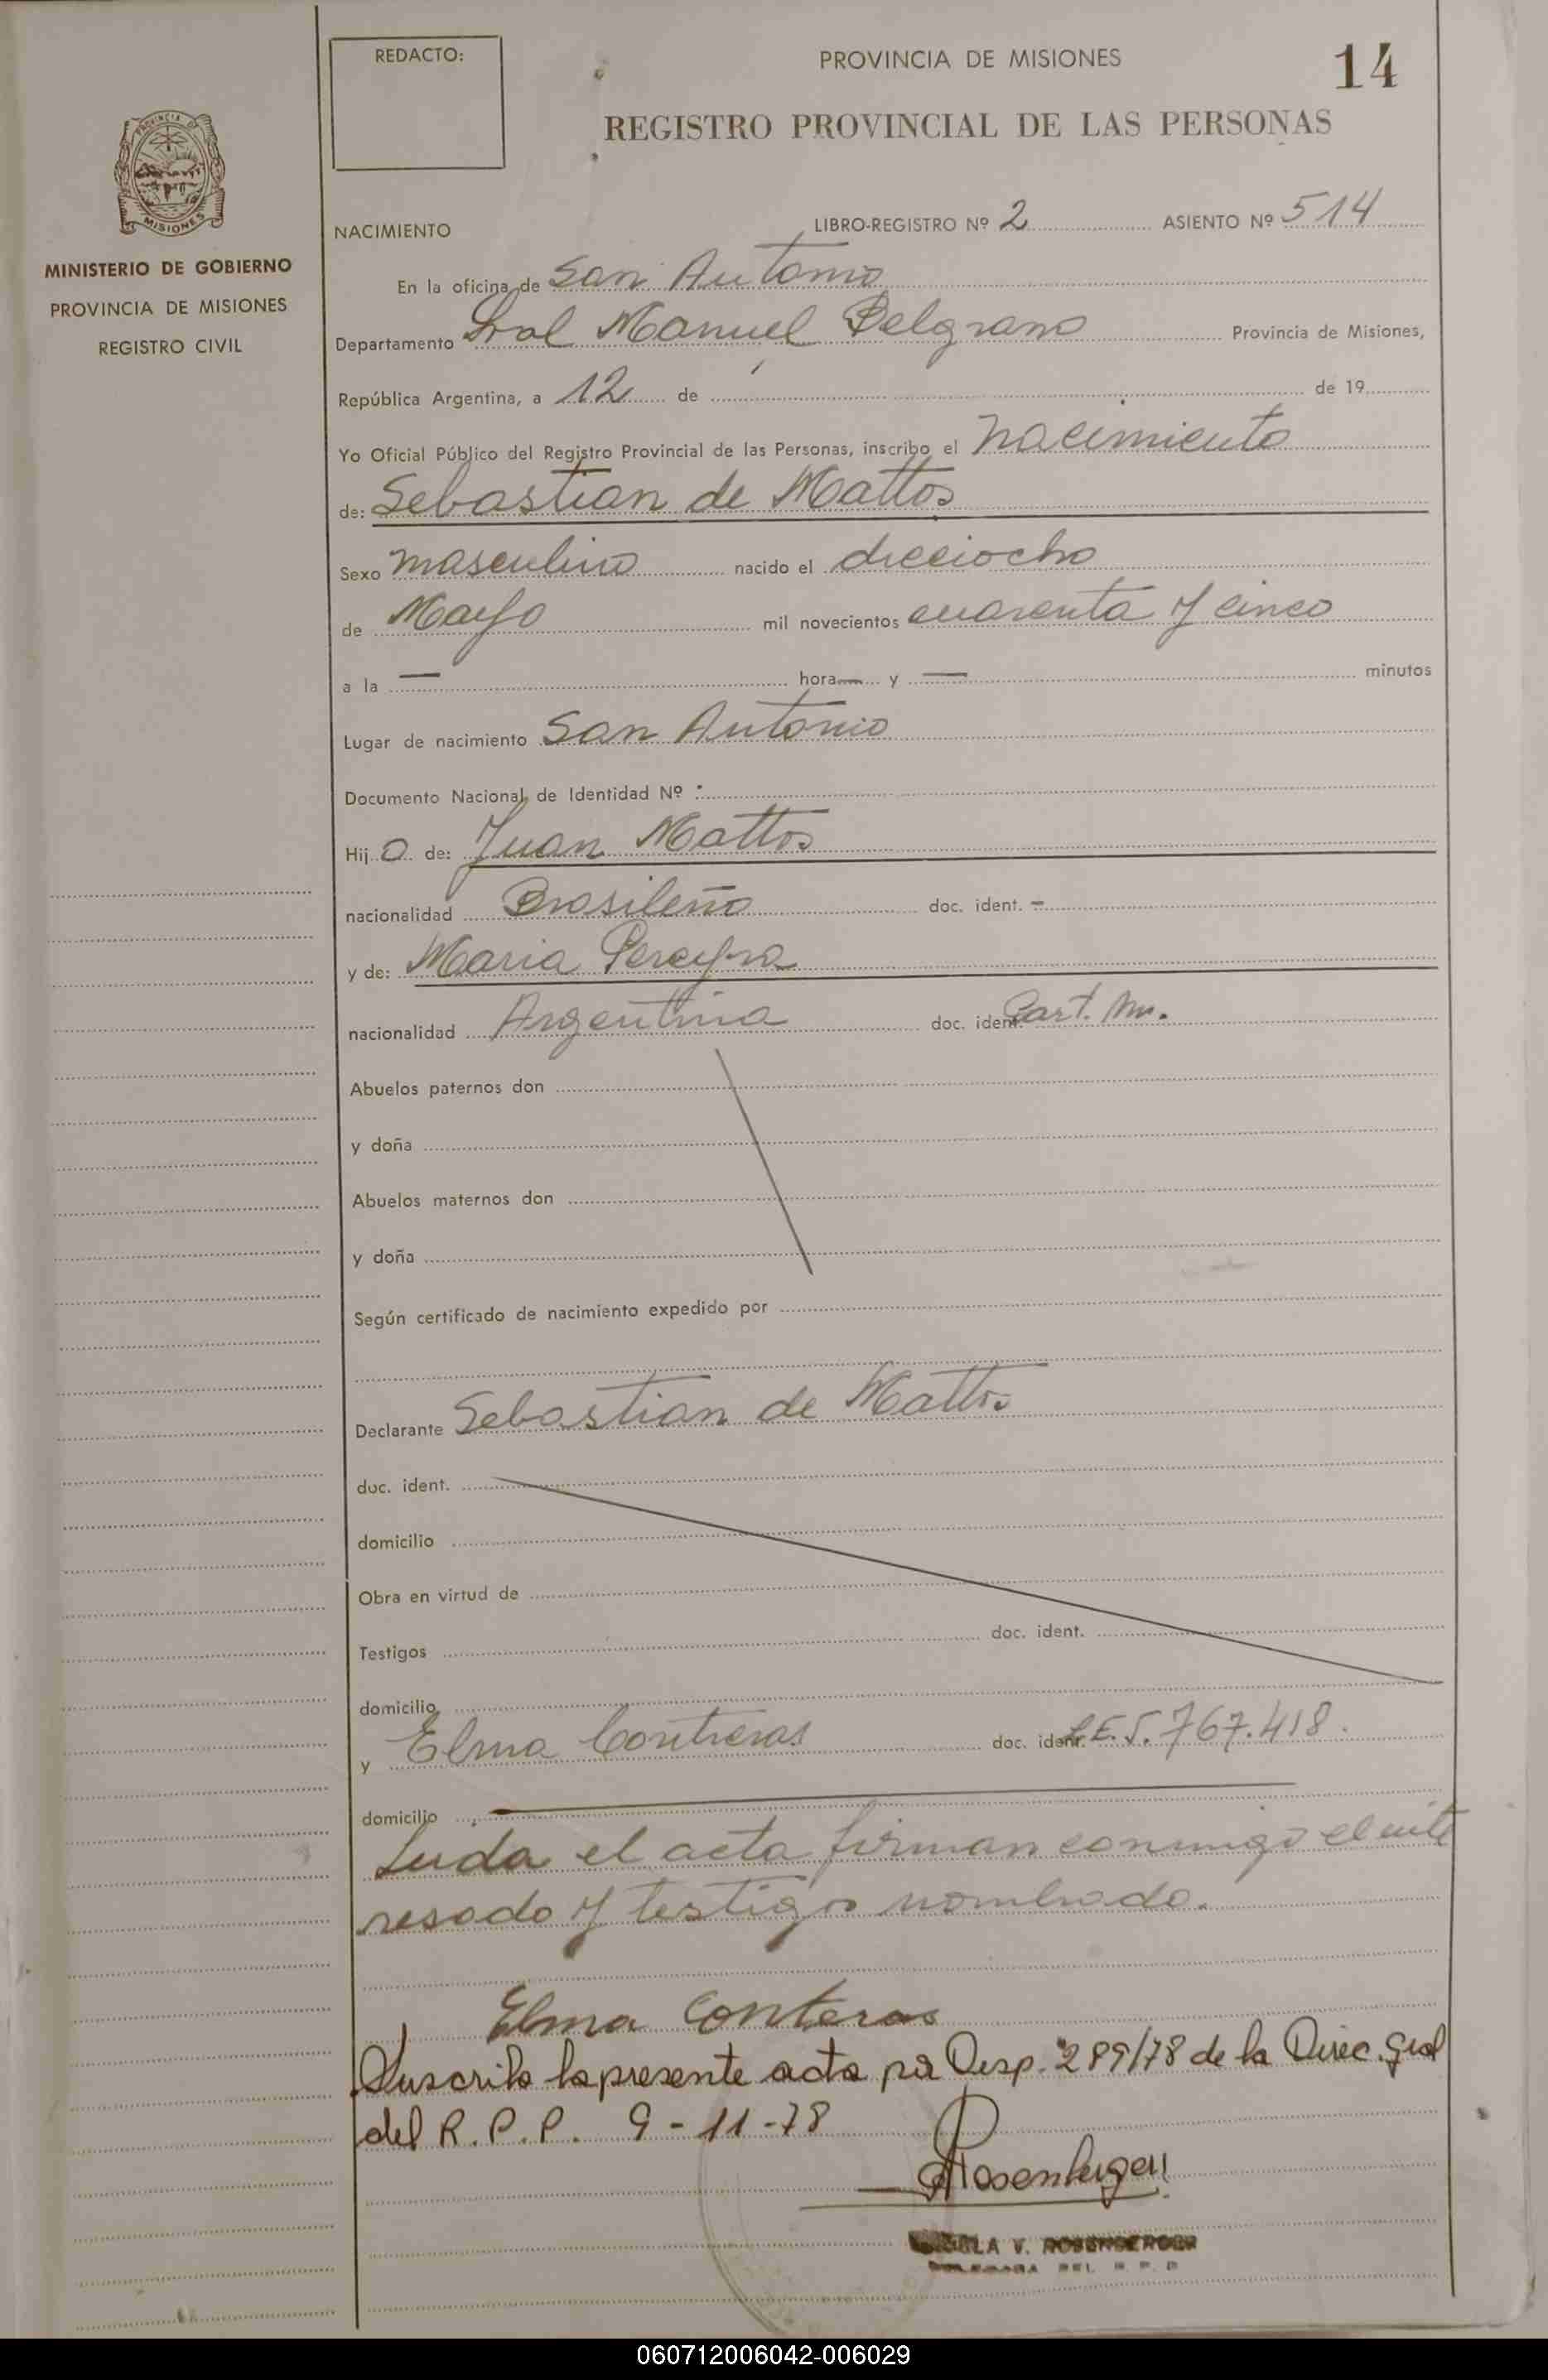 REDACTO:
PROVINCIA DE MISIONES
14
REGISTRO PROVINCIAL DE LAS PERSONAS
PROVINCIA DE
MISIONES
MINISTERIO DE GOBIERNO
PROVINCIA DE MISIONES
REGISTRO CIVIL
NACIMIENTO
LIBRO-REGISTRO Nº 2 ASIENTO Nº 514
En la oficina de San Antonio
Departamento Gral Manuel Belgrano Provincia de Misiones,
República Argentina, a 12 de de 19
Yo Oficial Público del Registro Provincial de las Personas, inscribo el nacimiento
de: Sebastian de Mattos
Sexo masculino nacido el dieciocho
de Mayo mil novecientos cuarenta y cinco
a la — hora — y — minutos
Lugar de nacimiento San Antonio
Documento Nacional de Identidad Nº
Hij o de: Juan Mattos
nacionalidad Brasileño doc. ident. -
y de: Maria Pereyra
nacionalidad Argentina doc. ident.
Abuelos paternos don
y doña
Abuelos maternos don
y doña
Según certificado de nacimiento expedido por
Declarante Sebastian de Mattos
doc. ident.
domicilio
Obra en virtud de
Testigos doc. ident.
domicilio
y Elma Contreras doc. ident. L.E. 5.767.418.
domicilio
Leida el acta firman conmigo el inte
resado y testigos nombrado.
Elma Conteras
Suscribo la presente acta por Disp. 289/78 de la Direc. Gral
del R.P.P. 9-11-78
V. ROSENBERGER
060712006042-006029